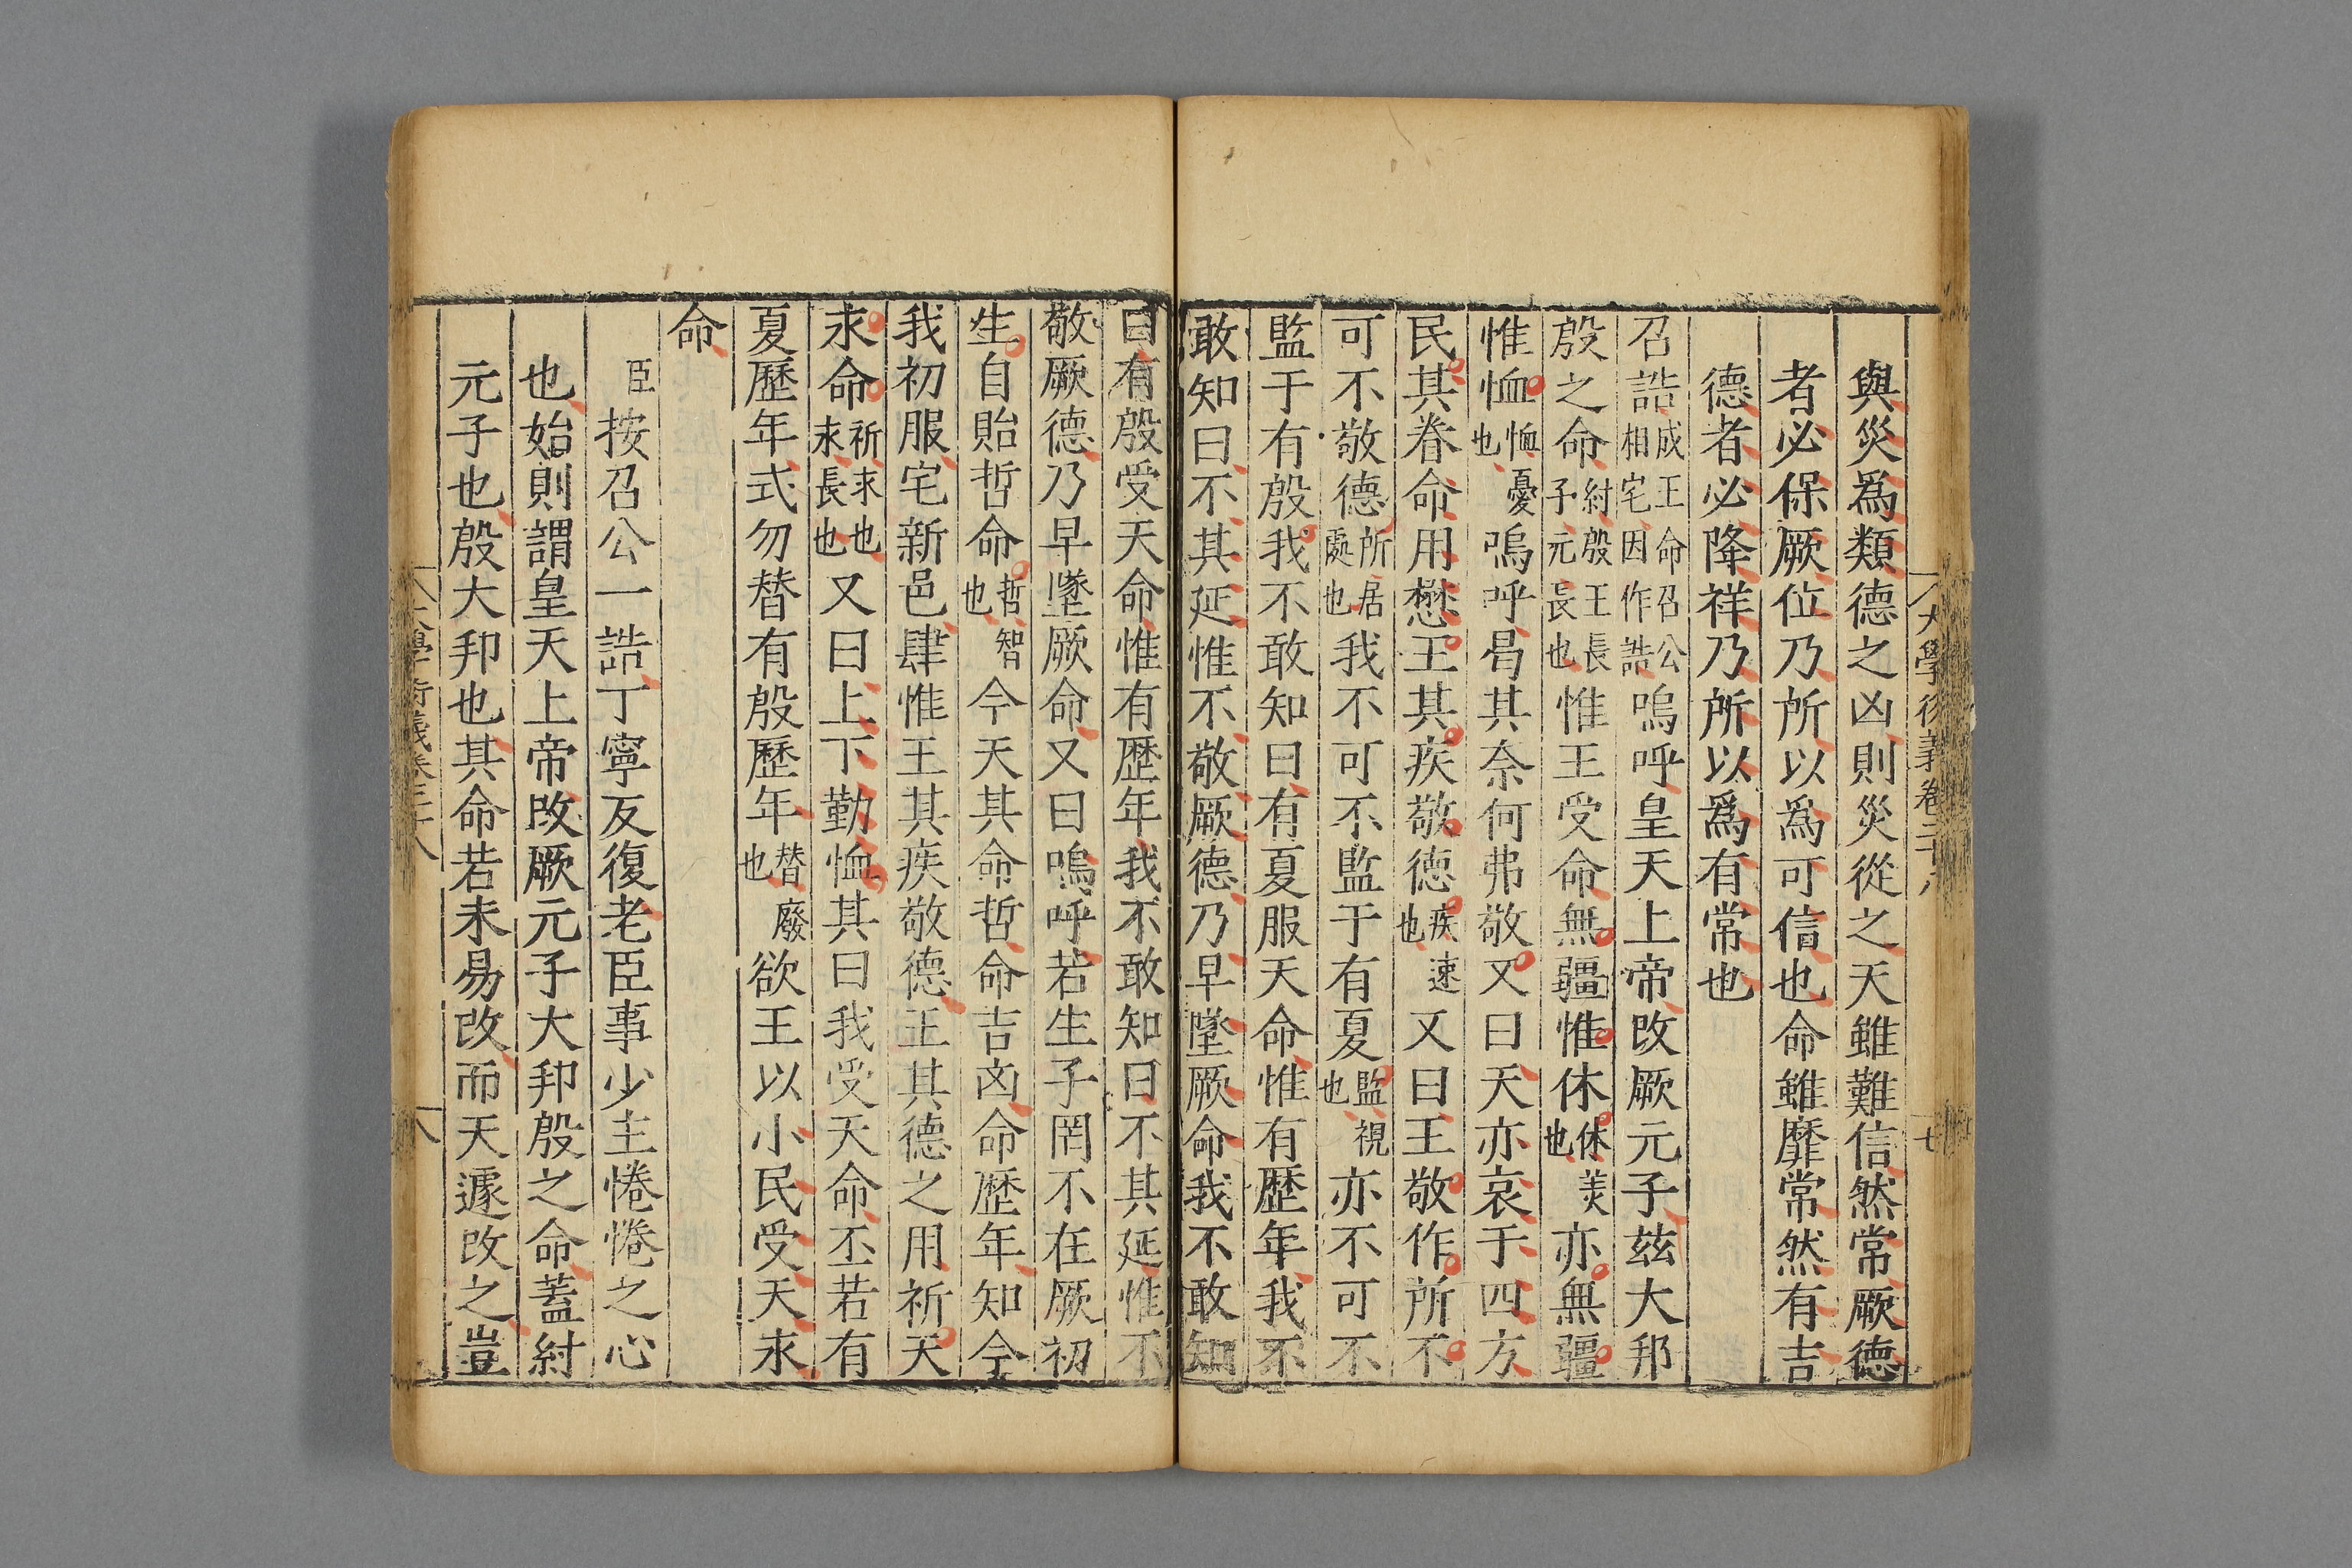 大學衍義卷二十八
七
與災爲類德之凶則災從之天雖難信然常厥德
者必保厥位乃所以爲可信也命雖靡常然有吉
德者必降祥乃所以爲有常也
召誥成王命召公相宅因作誥嗚呼皇天上帝改厥元子兹大邦
殷之命紂殷王長子元長也惟王受命無疆惟休休美也亦無疆
惟恤恤憂也嗚呼曷其奈何弗敬又曰天亦哀于四方
民其眷命用懋王其疾敬德疾速也又曰王敬作所不
可不敬德所居處也我不可不監于有夏監視也亦不可不
監于有殷我不敢知曰有夏服天命惟有歷年我不
敢知曰不其延惟不敬厥德乃早墜厥命我不敢知
曰有殷受天命惟有歷年我不敢知曰不其延惟不
敬厥德乃早墜厥命又曰嗚呼若生子罔不在厥初
生自貽哲命哲智也今天其命哲命吉凶命歷年知今
我初服宅新邑肆惟王其疾敬德王其德之用祈天
永命祈求也永長也又曰上下勤恤其曰我受天命丕若有
夏歷年式勿替有殷歷年替廢也欲王以小民受天永
命
臣按召公一誥丁寧反復老臣事少主惓惓之心
也始則謂皇天上帝改厥元子大邦殷之命蓋紂
元子也殷大邦也其命若未易改而天遽改之豈
大學衍義卷二十八
八